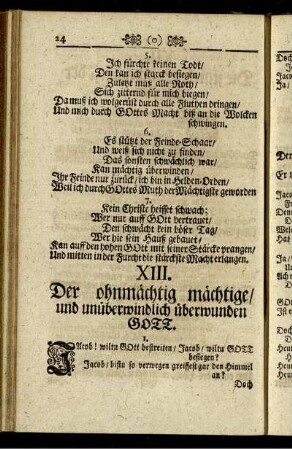 24 (o)
5.
Ich fürchte keinen Todt/
Den kan ich starck besiegen/
Zuletzt mus alle Noth/
Sich zitternd für mich biegen/
Da muß ich wolgerüst durch alle Fluthen dringen/
Und mich durch GOttes Macht biß an die Wolcken
schwingen.
6.
Es stützt der Feinde-Schaar/
Und weiß sich nicht zu finden/
Das sonsten schwächlich war/
Kan mächtig überwinden/
Ihr Feinde nur zurück/ ich bin in Helden-Orden/
Weil ich durch GOttes Muth der Mächtigste geworden
7.
Kein Christe heisset schwach:
Wer nur auff GOtt vertrauet/
Den schwächt kein böser Tag/
Wer hie sein Hauß gebauet/
Kan auff den hohen GOtt mit seiner Stärcke prangen/
Und mitten in der Furcht die stärckste Macht erlangen.
XIII.
Der ohnmächtig mächtige/
und unüberwindlich überwunden
GOTT.
1.
JAcob! wiltu GOtt bestreiten/ Jacob/ wiltu GOTT
besiegen?
Jacob/ bistu so verwegen greiffest gar den Himmel
an?
Doch